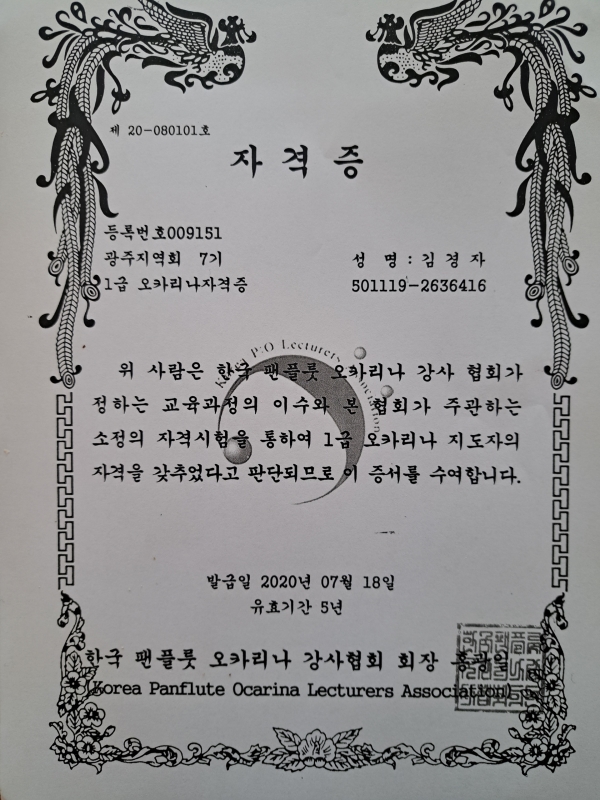 제 20-080101호
자격증
등록번호009151
광주지역회 7기
성 명 : 김경자
1급 오카리나자격증
501119-2636416
위 사람은 한국 팬플룻 오카리나 강사 협회가
정하는 교육과정의 이수와 본 협회가 주관하는
소정의 자격시험을 통하여 1급 오카리나 지도자의
자격을 갖추었다고 판단되므로 이 증서를 수여합니다.
발급일 2020년 07월 18일
유효기간 5년
한국 팬플룻 오카리나 강사협회 회장
(Korea Panflute Ocarina Lecturers Association)